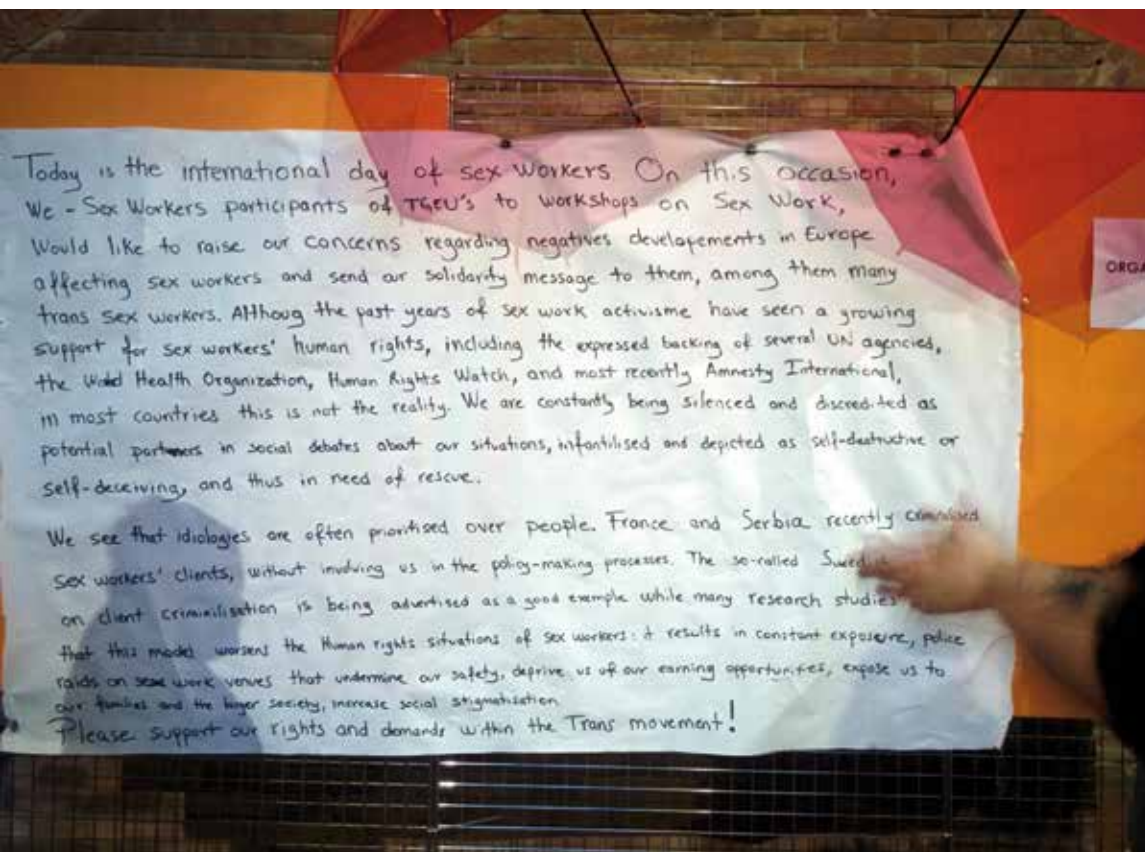 Today is the international day of sex workers On this occasion,
We - Sex Workers participants of TGEU's to workshops on Sex Work,
Would like to raise our concerns regarding negatives developements in Europe
affecting sex workers and send our solidarity message to them, among them many
trans sex workers. Althoug the past years of sex work activisme have seen a growing
support for sex workers' human rights, including the expressed backing of several UN agencied,
the World Health Organization, Human Rights Watch, and most recently Amnesty International,
in most countries this is not the reality. We are constantly being silenced and discredited as
potential partners in social debates about our situations, infantilised and depicted as self-destructive or
self-deceiving, and thus in need of rescue.
We see that idiologies are often prioritised over people. France and Serbia recently criminalised
sex workers' clients, without involving us in the policy-making processes. The so-called
on client criminilisation is being advertised as a good exemple while many research studies
that this model worsens the Human rights situations of sex workers: it results in constant exposure, police
raids on work venues that undermine our safety, deprive us of our earning opportunities, expose us to
our families and the society, increase social stigmatisation
Please support our rights and demands within the Trans movement!
ORGA